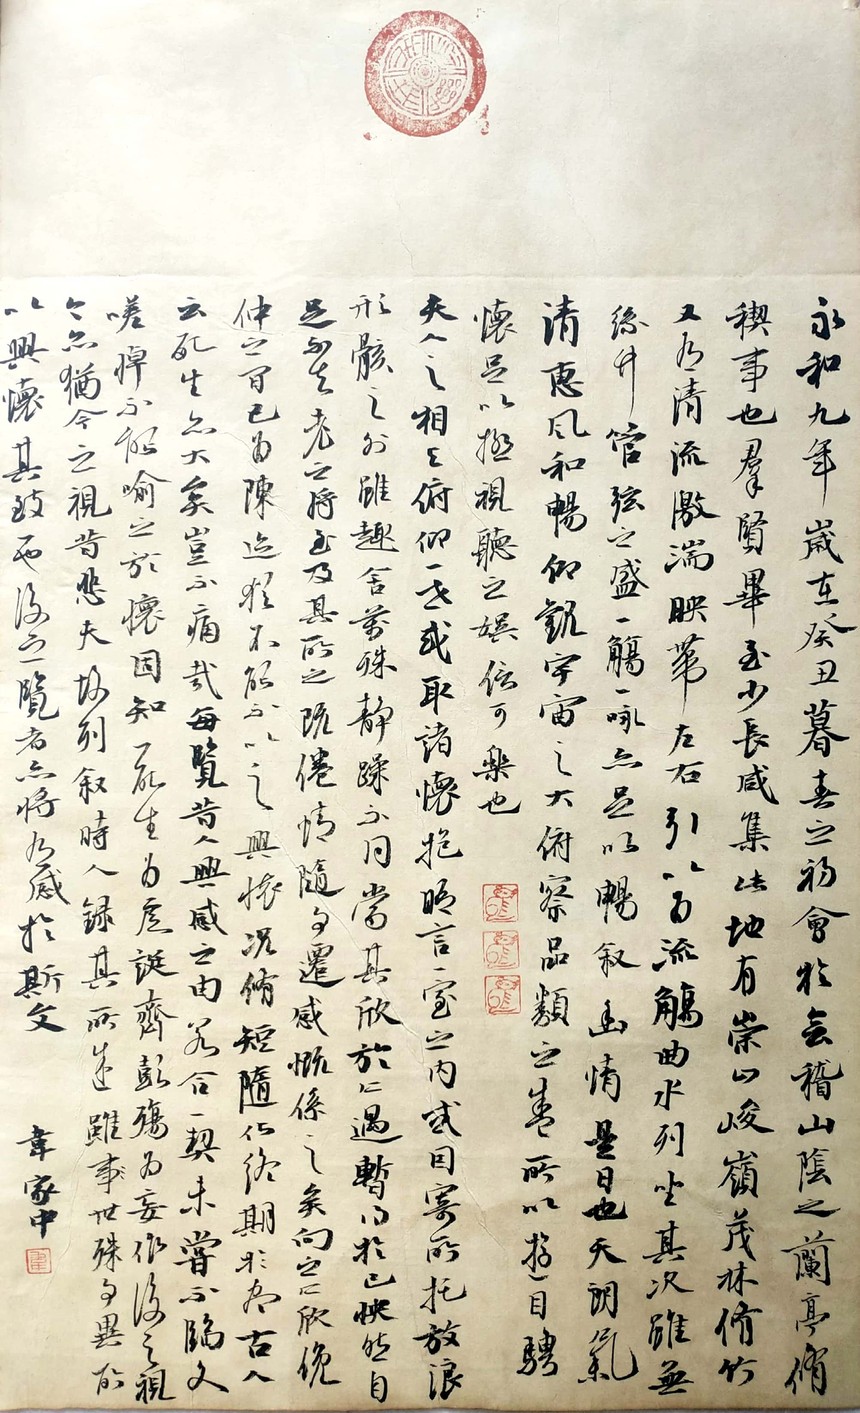 永和九年歲在癸丑暮春之初會於會稽山陰之蘭亭脩
稧事也羣賢畢至少長咸集此地有崇山峻嶺茂林脩竹
又有清流激湍映帶左右引以為流觴曲水列坐其次雖無
絲竹管弦之盛一觴一詠亦足以暢叙幽情是日也天朗氣
清惠風和暢仰觀宇宙之大俯察品類之盛所以遊目騁
懷足以極視聽之娛信可樂也
夫人之相與俯仰一世或取諸懷抱晤言一室之內或因寄所托放浪
形骸之外雖趣舍萬殊靜躁不同當其欣於所遇暫得於己怏然自
足不知老之將至及其所之既倦情隨事遷感慨係之矣向之所欣俛
仰之間已為陳迹猶不能不以之興懷況脩短隨化終期於盡古人
云死生亦大矣豈不痛哉每覽昔人興感之由若合一契未嘗不臨文
嗟悼不能喻之於懷固知一死生為虛誕齊彭殤為妄作後之視
今亦猶今之視昔悲夫故列叙時人錄其所述雖事世殊事異所
以興懷其致一也後之覽者亦將有感於斯文
韋家中